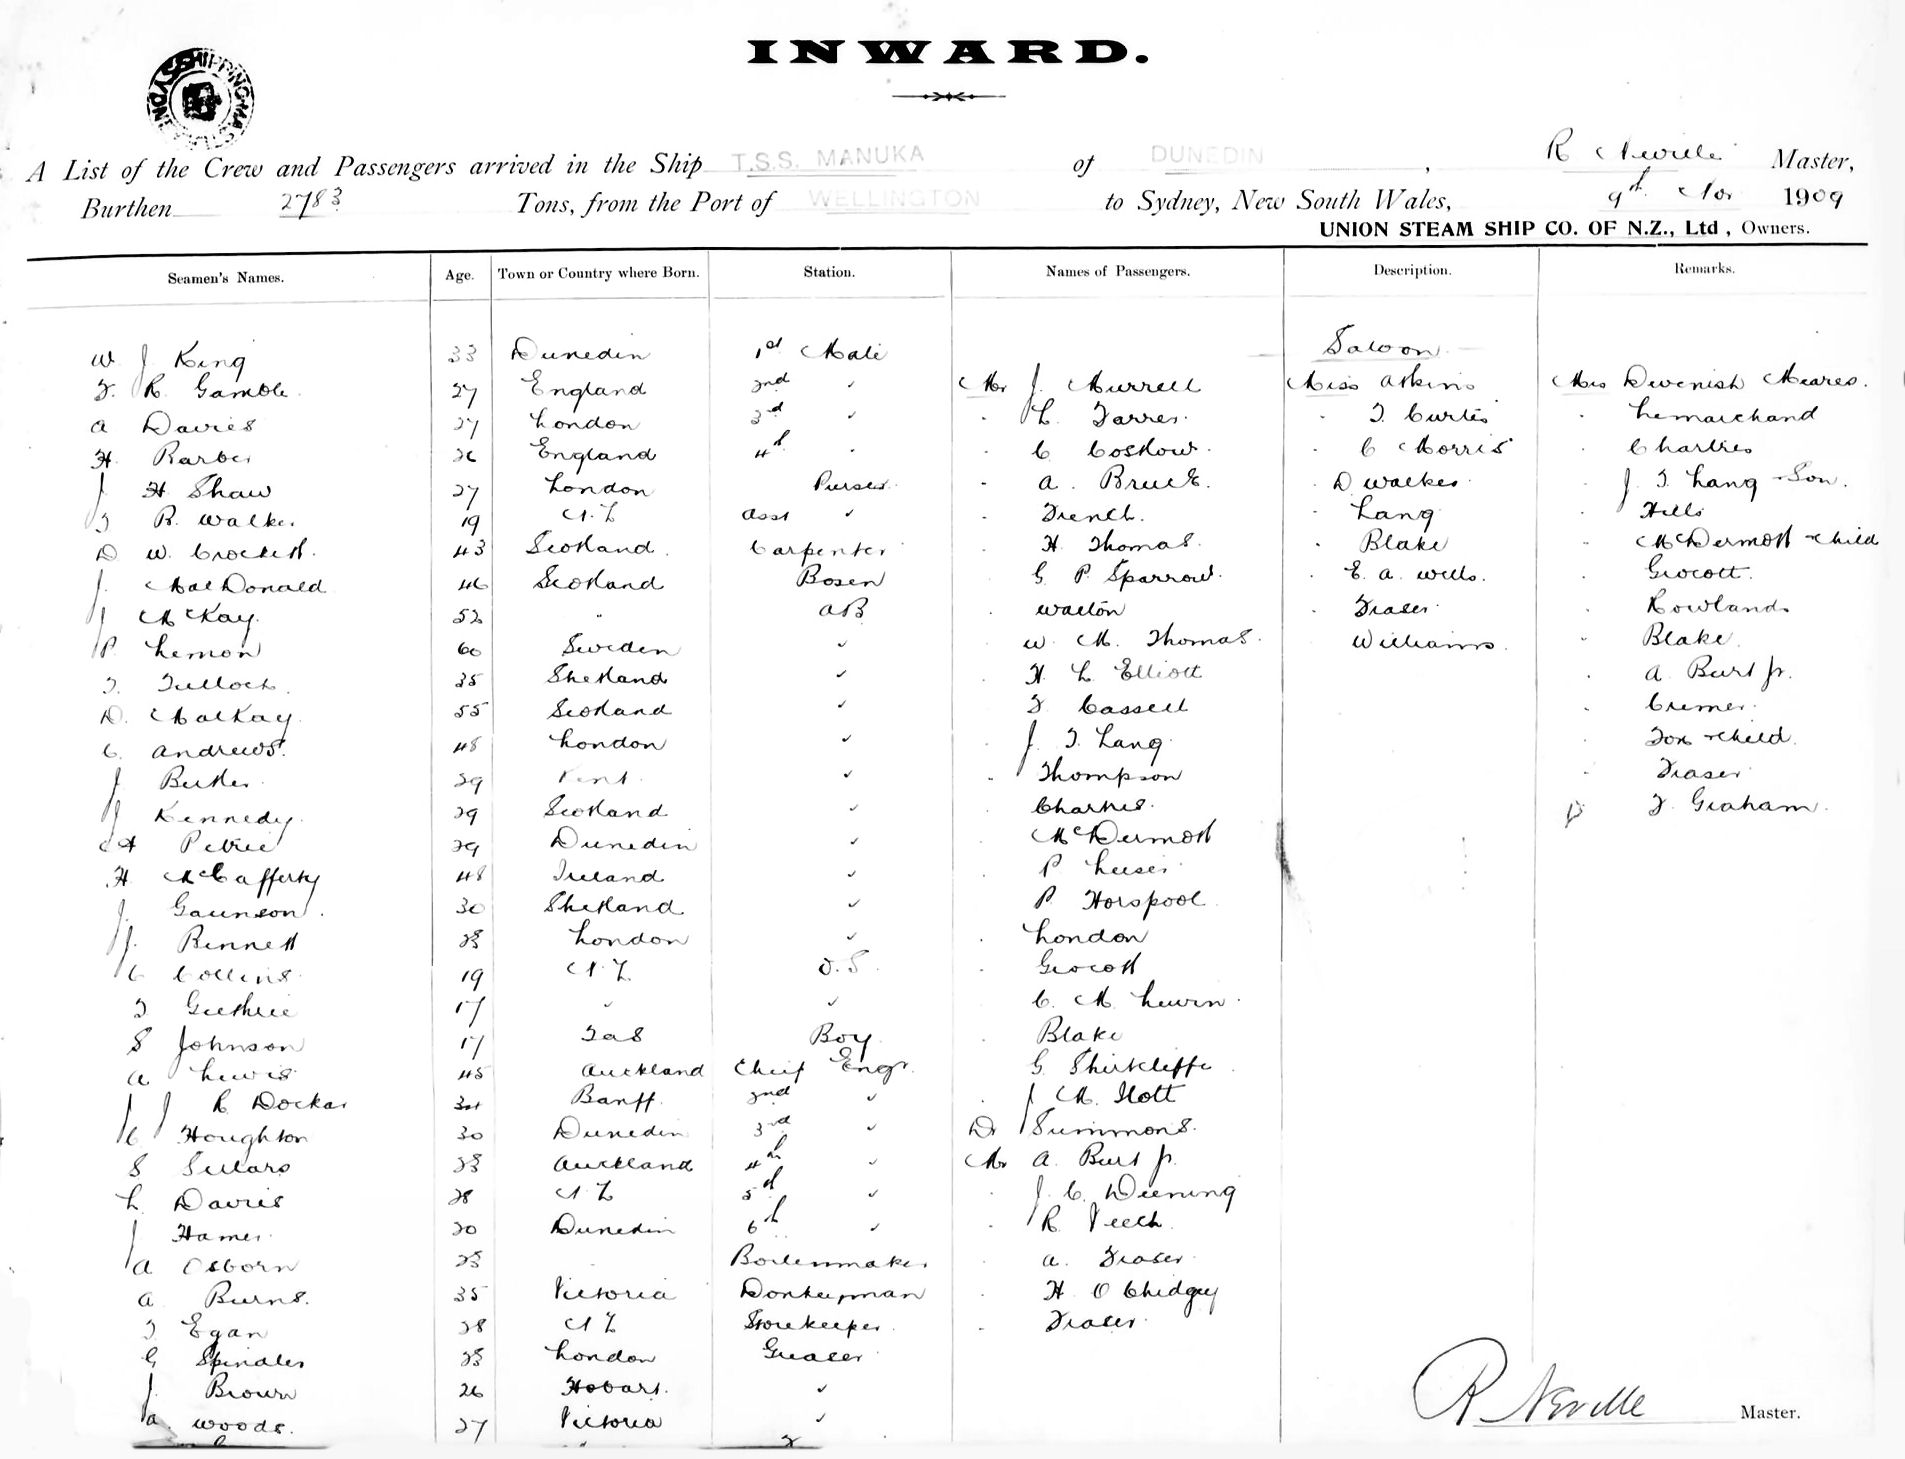 INWARD.
A List of the Crew and Passengers arrived in the Ship T.S.S. MANUKA of DUNEDIN, R Neville Master,
Burthen 2783 Tons, from the Port of WELLINGTON to Sydney, New South Wales, 9th Nov 1909
UNION STEAM SHIP CO. OF N.Z., Ltd, Owners.
Seamen's Names. Age. Town or Country where Born. Station. Names of Passengers. Description. Remarks.
Saloon
W J King 33 Dunedin 1st Mate
F. R Gamble 27 England 2nd " Mr J. Murrell Miss Atkins Mrs Devenish Meares.
A Davies 27 London 3rd " " L. Farres. " F Curtis " Lemarchand
H. Barber 26 England 4th " " C Coskow. " C Morris " Chartres
J H Shaw 27 London Purser. " A. Bruce. " D Walker " J. F Lang & Son.
F R. Walker 19 N Z Asst " " French. " Lang " Hills
D W. Crockett. 43 Scotland. Carpenter " H Thomas. " Blake " McDermott & Child
J. MacDonald 46 Scotland Bosen " G P. Sparrow. " E. A. Wells. " Grocott.
J McKay. 52 " AB " Walton " Fraser " Rowlands
P. Lemon 60 Sweden " " W M. Thomas. Williams. " Blake
T. Tulloch. 35 Shetland " H L Elliott " A Burt Jr.
D. MacKay. 55 Scotland " F Cassell " Cremer.
C. Andrews. 48 London " " J. F. Lang " Fox & Child.
J Butler. 29 Kent. " " Thompson " Fraser
J Kennedy. 29 Scotland " Chartres. F. Graham.
Petrie 29 Dunedin " " McDermott
H McCafferty 48 Ireland " " P
J. Gaunson. 30 Shetland " P. Horspool
J. Bennett 28 London " " London
C Collins. 19 N. Z. O.S. " Grocott
T Guthrie 17 " " C. M. Lewin.
S Johnson 17 Tas Boy " Blake
A Lewis 45 Auckland Chief Engr. G. Shirtcliffe
J J R Dockar 34 Banff. 2nd " " J M. Stott
C Houghton 30 Dunedin 3rd " Dr Summons.
S Sellars 28 Auckland 4th " Mr A. Burt Jr.
L Davis 28 N Z 5th " " J. C. Deening
J Hamer. 30 Dunedin 6th " " R. Veech.
A Osborn 28 " Boilermaker " A. Fraser
A Burns. 35 Victoria Donkeyman H O Chidgey
T Egan 28 N Z Storekeeper. " Fraser.
G Spindler 28 London Greaser
J. Brown 26 Hobart. "
A. Woods. 27 Victoria "
R Neville Master.